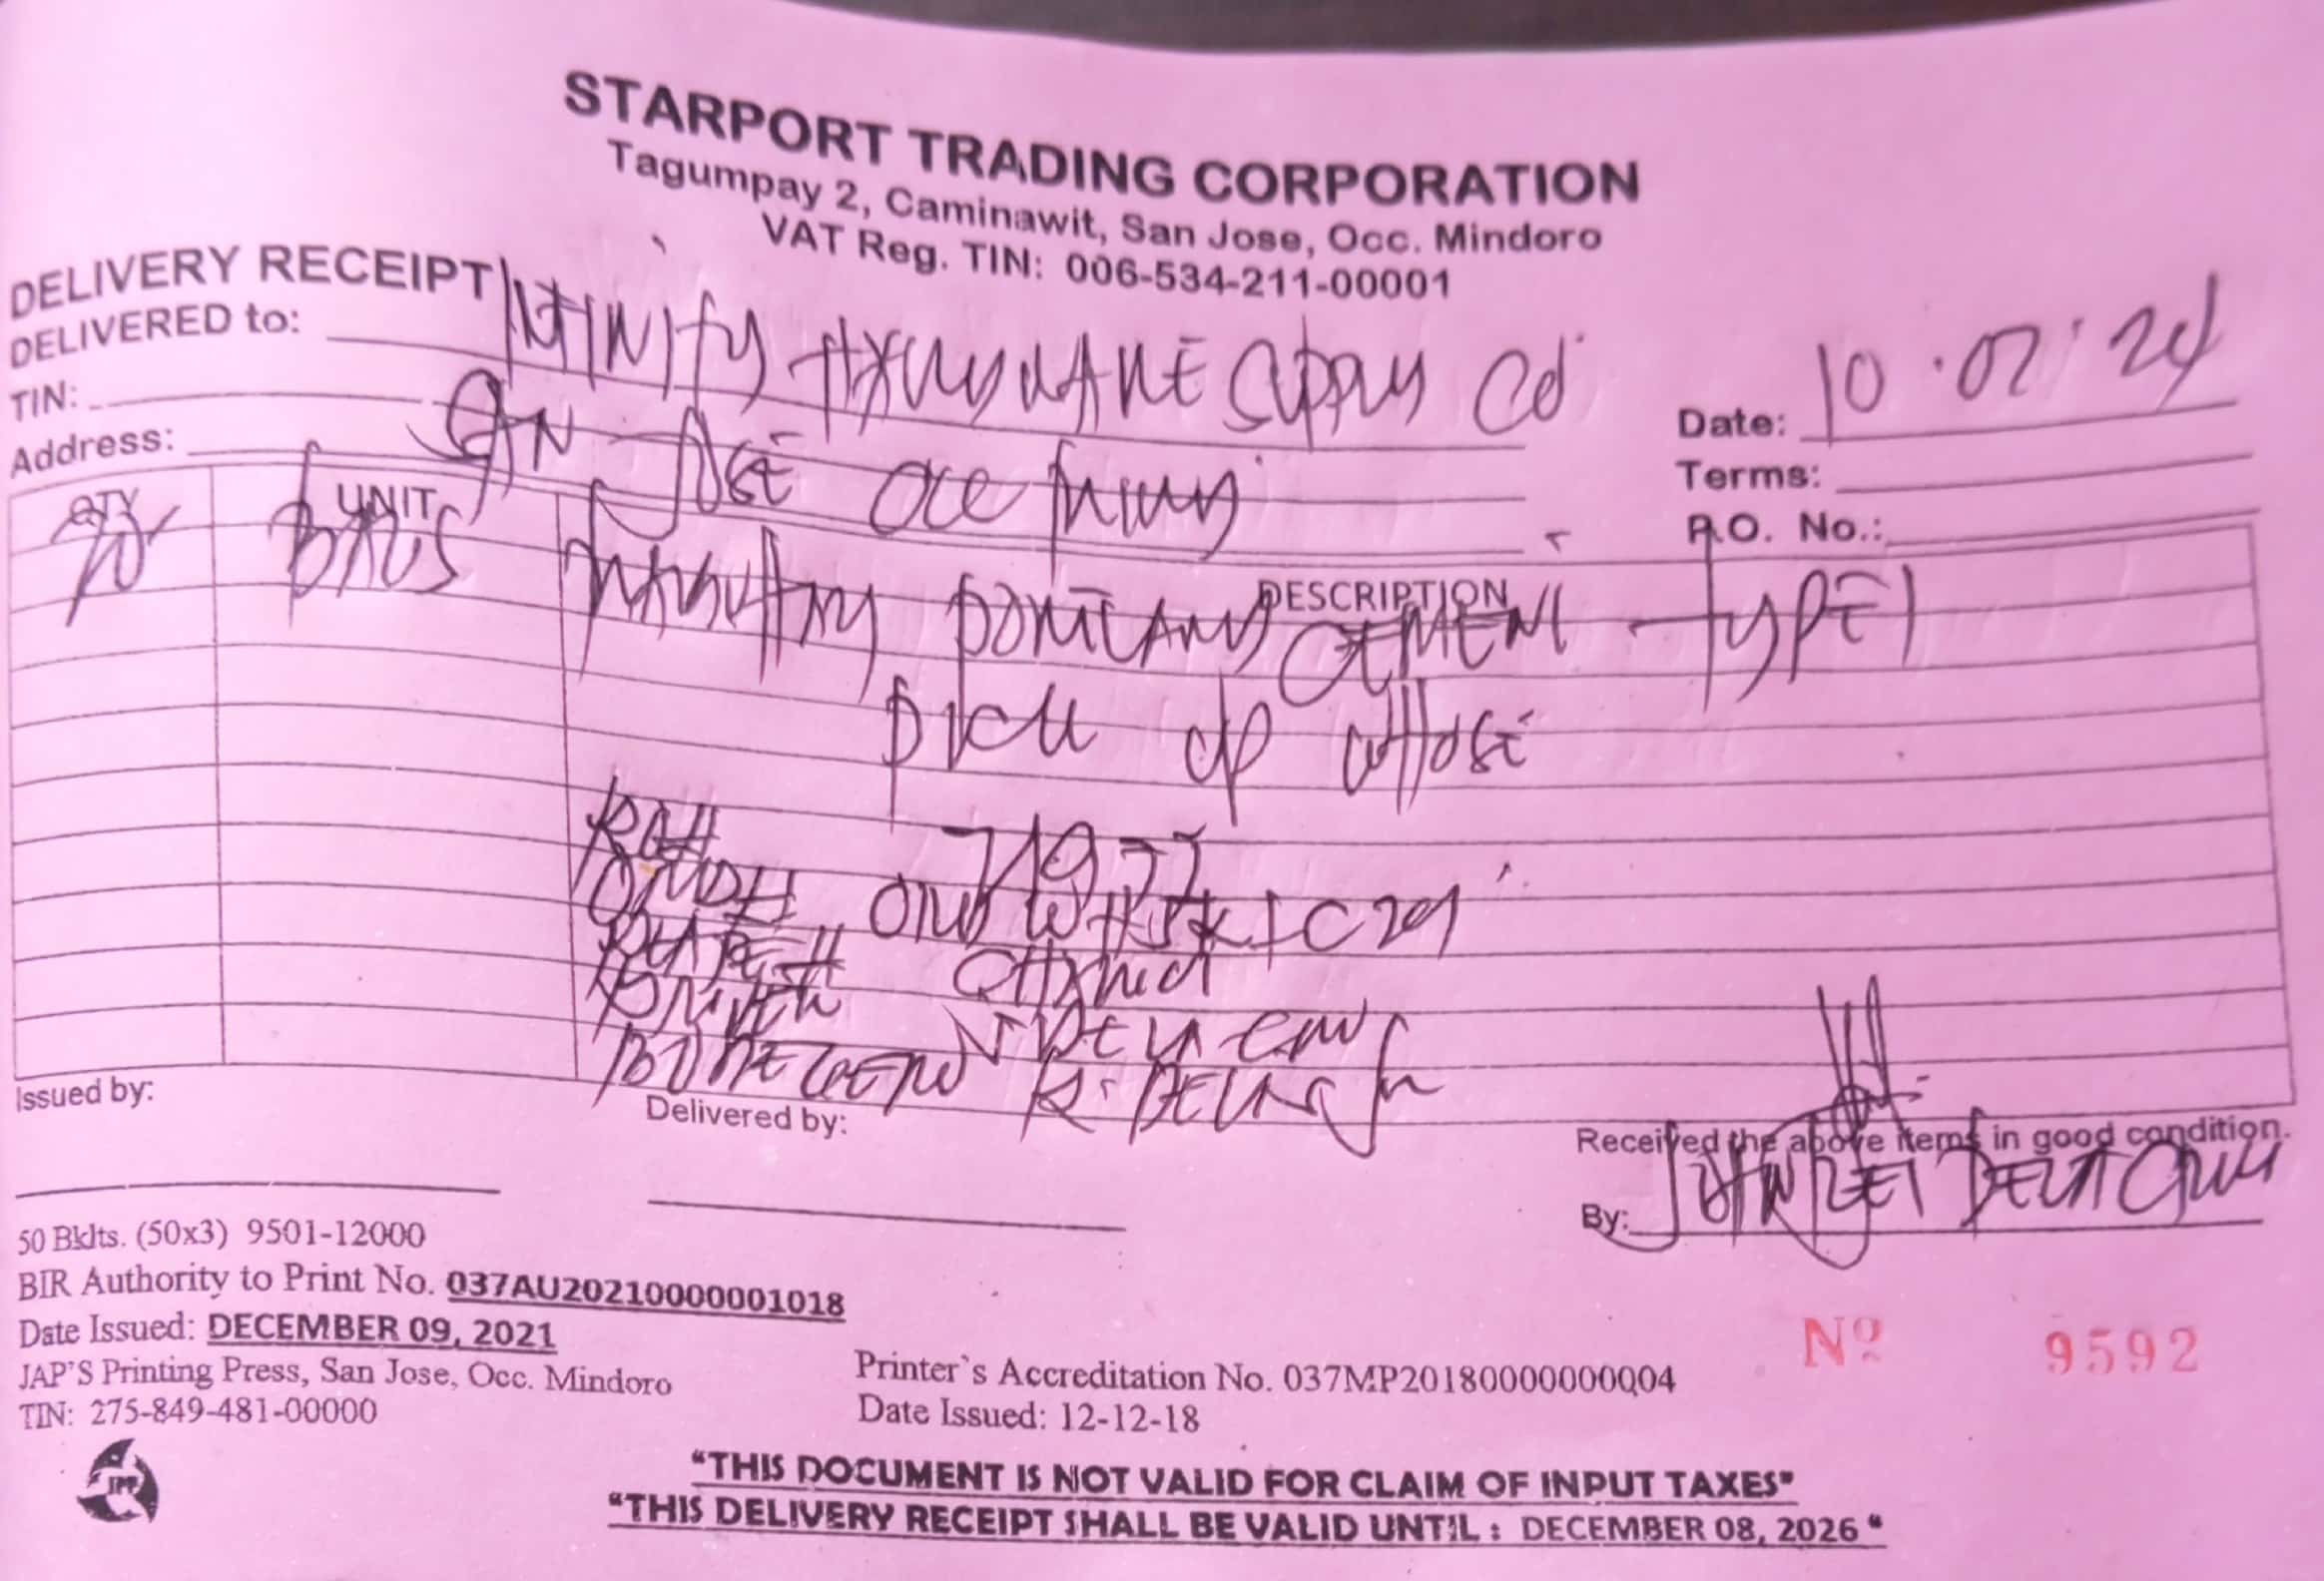 STARPORT TRADING CORPORATION
Tagumpay 2, Caminawit, San Jose, Occ. Mindoro
VAT Reg. TIN: 006-534-211-00001
DELIVERY RECEIPT
DELIVERED to: INFINITY HARDWARE SUPPLY CO
TIN:
Address: SAN JOSE OCC
Date: 10.02.24
Terms:
P.O. No.:
QTY UNIT DESCRIPTION
BAGS PORTLAND CEMENT TYPE 1
PICK UP WHOSE
71977
PLATE #
DRIVER
BODEGERO R. DELA
Issued by:
Delivered by:
Received the above items in good condition.
By: JOHN REY DELA CRUZ
50 Bklts. (50x3) 9501-12000
BIR Authority to Print No. 037AU20210000001018
Date Issued: DECEMBER 09, 2021
JAP'S Printing Press, San Jose, Occ. Mindoro
TIN: 275-849-481-00000
Printer`s Accreditation No. 037MP20180000000004
Date Issued: 12-12-18
Nº 9592
JPP
"THIS DOCUMENT IS NOT VALID FOR CLAIM OF INPUT TAXES"
"THIS DELIVERY RECEIPT SHALL BE VALID UNTIL : DECEMBER 08, 2026 "